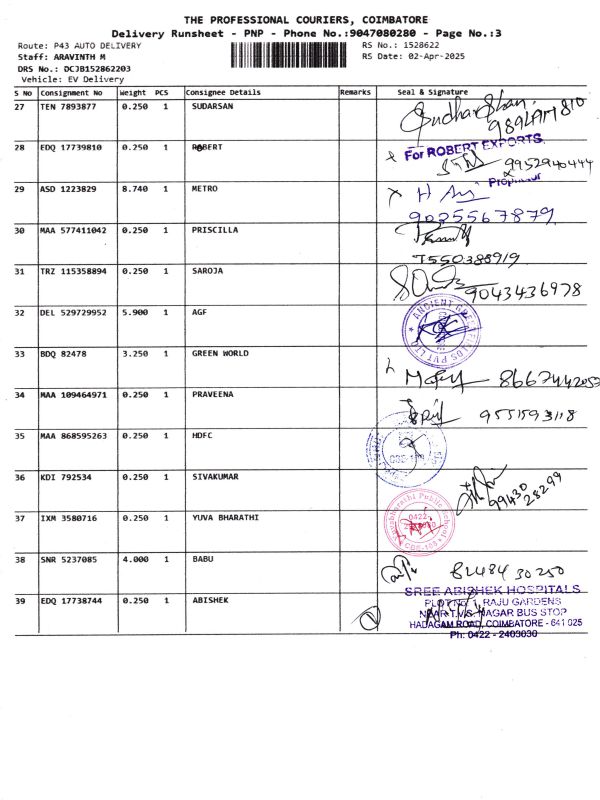 THE PROFESSIONAL COURIERS, COIMBATORE
Delivery Runsheet - PNP - Phone No.:9047080280 - Page No.:3
Route: P43 AUTO DELIVERY RS No.: 1528622
Staff: ARAVINTH M RS Date: 02-Apr-2025
DRS No.: DCJB152862203
Vehicle: EV Delivery
S No Consignment No Weight PCS Consignee Details Remarks Seal & Signature
27 TEN 7893877 0.250 1 SUDARSAN
28 EDQ 17739810 0.250 1 ROBERT
For ROBERT EXPORTS,
9952940444
Proprietor
29 ASD 1223829 8.740 1 METRO
9025567879
30 MAA 577411042 0.250 1 PRISCILLA
7550388919
31 TRZ 115358894 0.250 1 SAROJA
9043436978
32 DEL 529729952 5.900 1 AGF
ANCIENT GREEN FIELDS PVT LTD
33 BDQ 82478 3.250 1 GREEN WORLD
8667442057
34 MAA 109464971 0.250 1 PRAVEENA
9551593118
35 MAA 868595263 0.250 1 HDFC
36 KDI 792534 0.250 1 SIVAKUMAR
99430
28299
37 IXM 3580716 0.250 1 YUVA BHARATHI
Yuvabharathi Public School
0422
38 SNR 5237085 4.000 1 BABU
82484 30250
39 EDQ 17738744 0.250 1 ABISHEK
SREE ABISHEK HOSPITALS
PLOT NO. 1, RAJU GARDENS
NEAR T.V.S. NAGAR BUS STOP
HADAGAM ROAD, COIMBATORE - 641 025
Ph: 0422 - 2403030